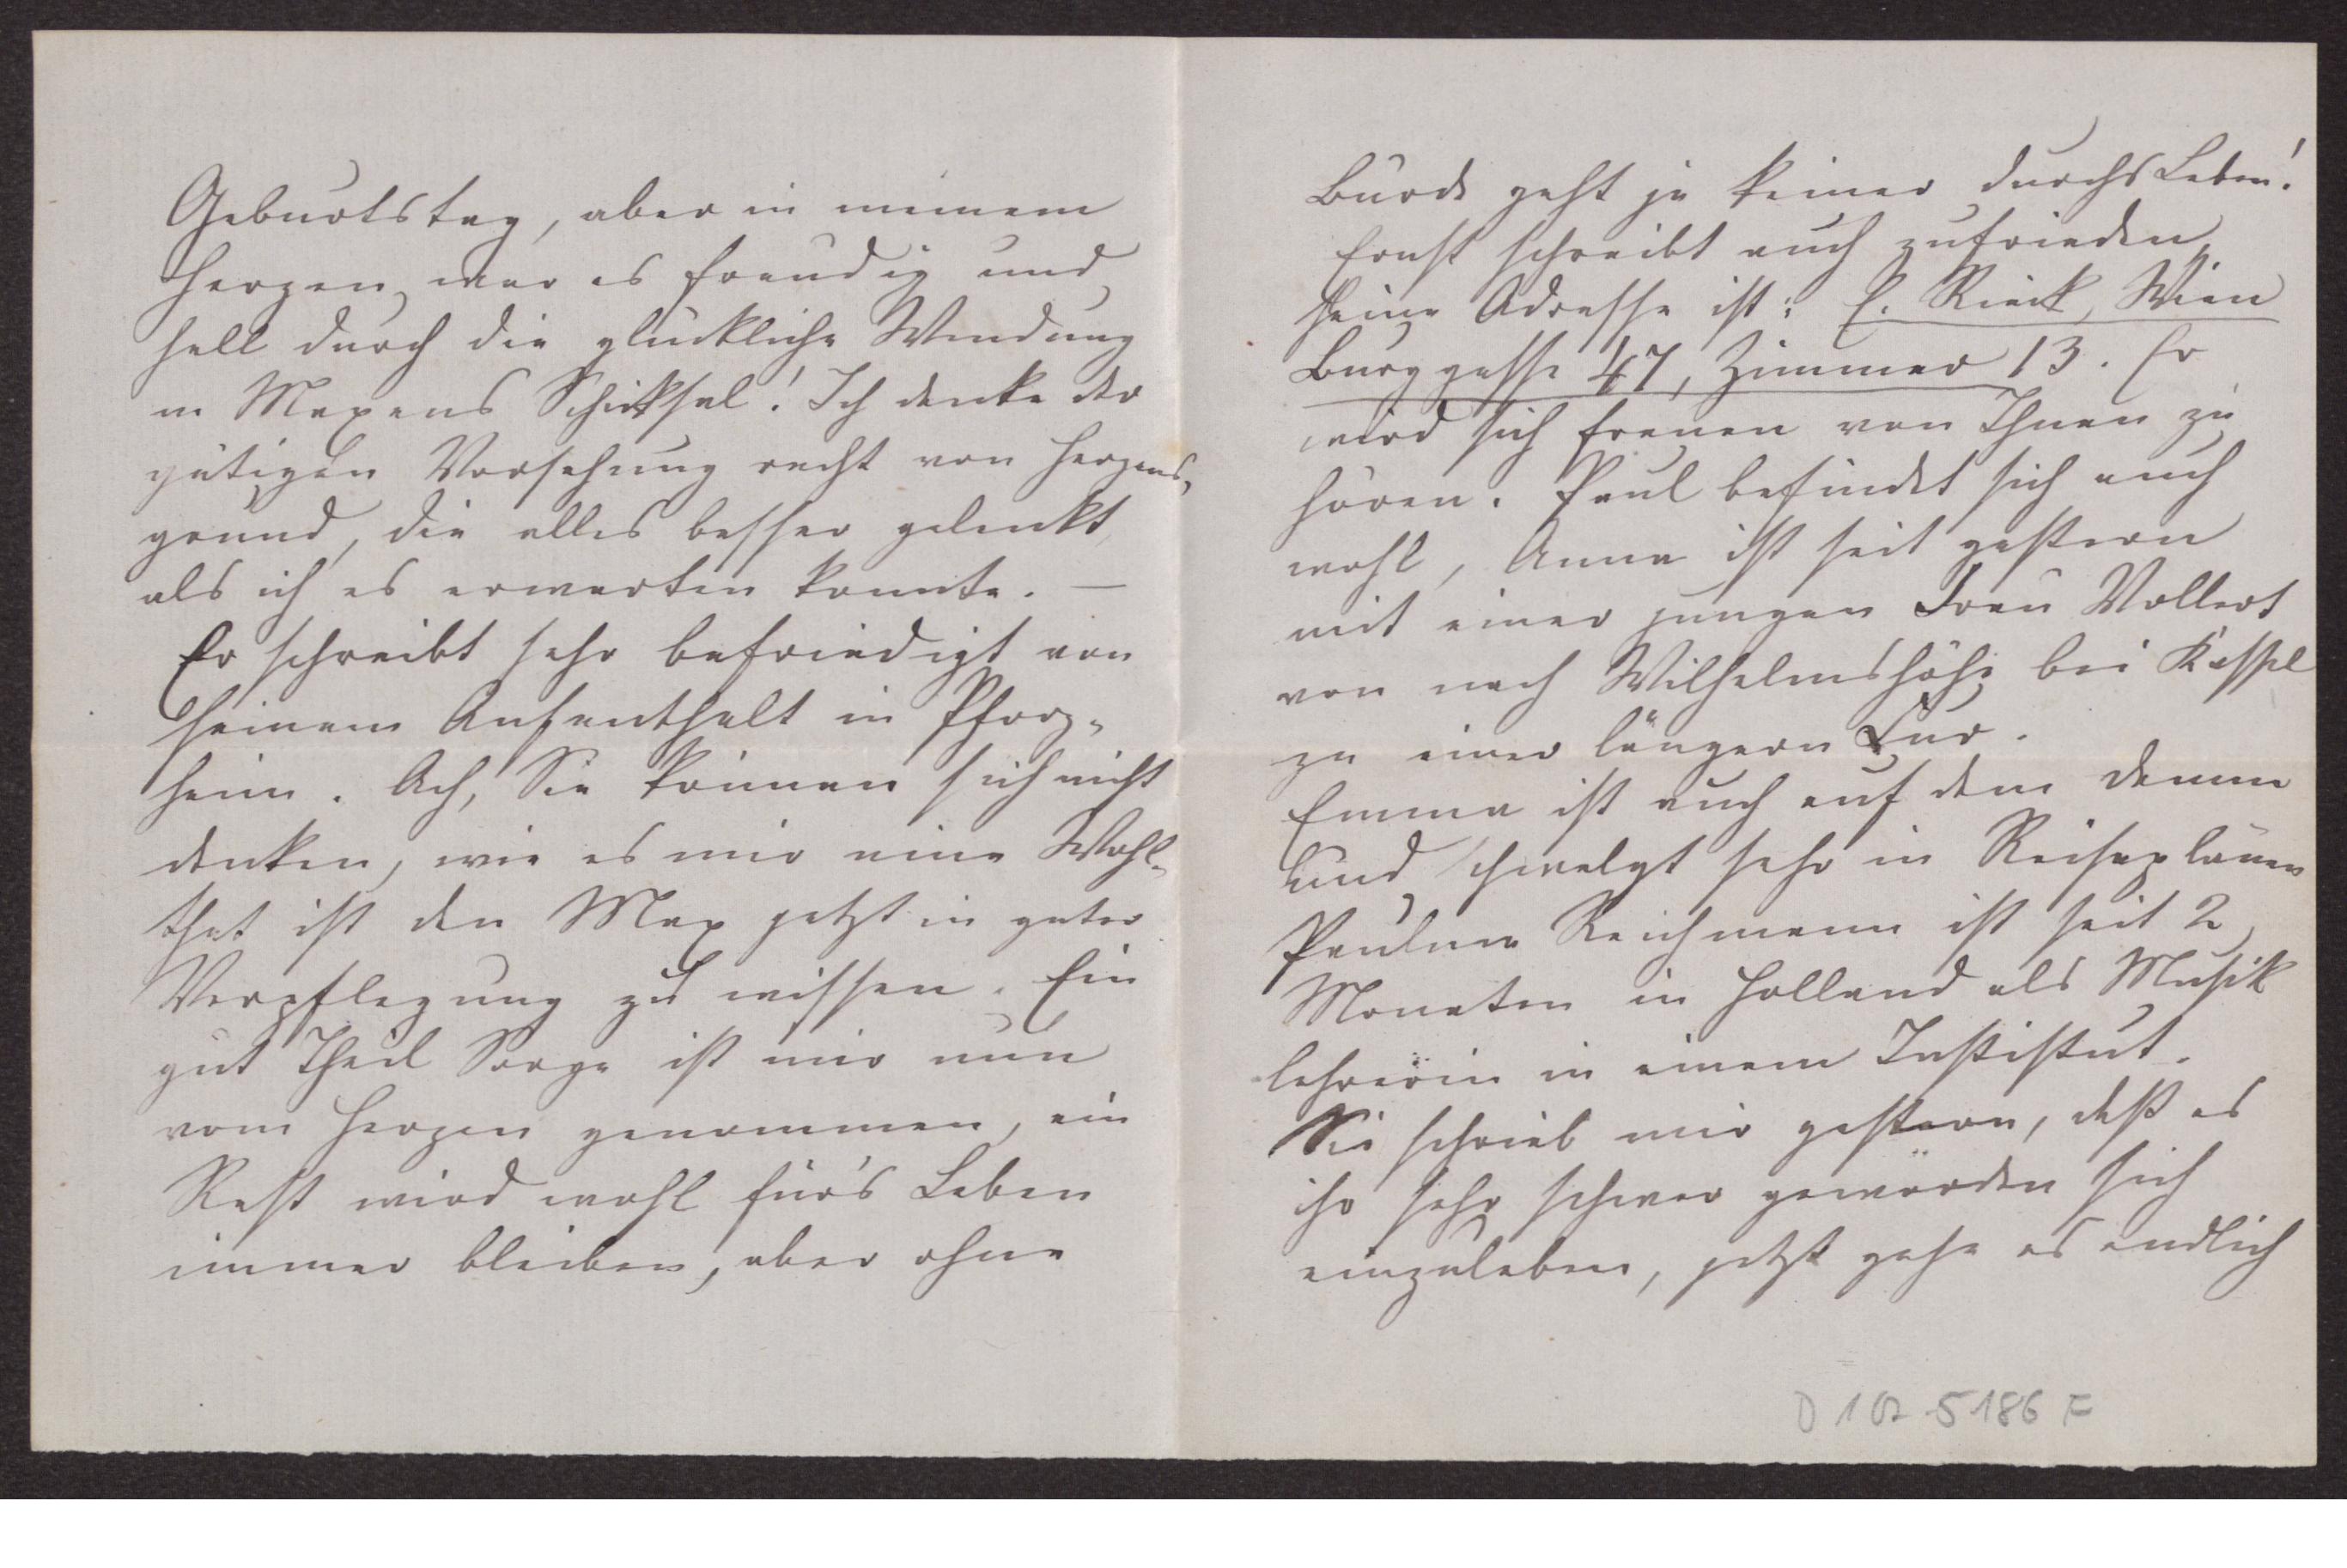 Geburtstag, aber in meinem
Herzen war es freudig und
hell durch die glückliche Wendung
in Maxens Schicksal! Ich danke der
gütigen Vorsehung recht von Herzens-
grund, die alles besser gelenkt,
als ich es erwarten konnte. —
Er schreibt sehr befriedigt von
seinem Aufenthalt in Pforz-
heim. Ach, Sie können sich nicht
denken, wie es mir eine Wohl-
that ist den Max jetzt in guter
Verpflegung zu wissen. Ein
gut Theil Sorge ist mir nun
vom Herzen genommen, ein
Rest wird wohl für's Leben
immer bleiben, aber ohne
Bürde geht ja keiner durchs Leben!
Ernst schreibt auch zufrieden,
seine Adresse ist: E. Rieck, Wien
Burggasse 47, Zimmer 13. Er
wird sich freuen von Ihnen zu
hören. Paul befindet sich auch
wohl, Anna ist seit gestern
mit einer jungen Frau Vollert
von nach Wilhelmshöhe bei Kassel
zu einer längern Cur.
Emma ist auch auf dem Damm
und schwelgt sehr in Reiseplänen
Pauline Reichmann ist seit 2
Monaten in Holland als Musik
lehrerin in einem Institut.
Sie schrieb mir gestern, daß es
ihr sehr schwer geworden sich
einzuleben, jetzt gehe es endlich
5186 F